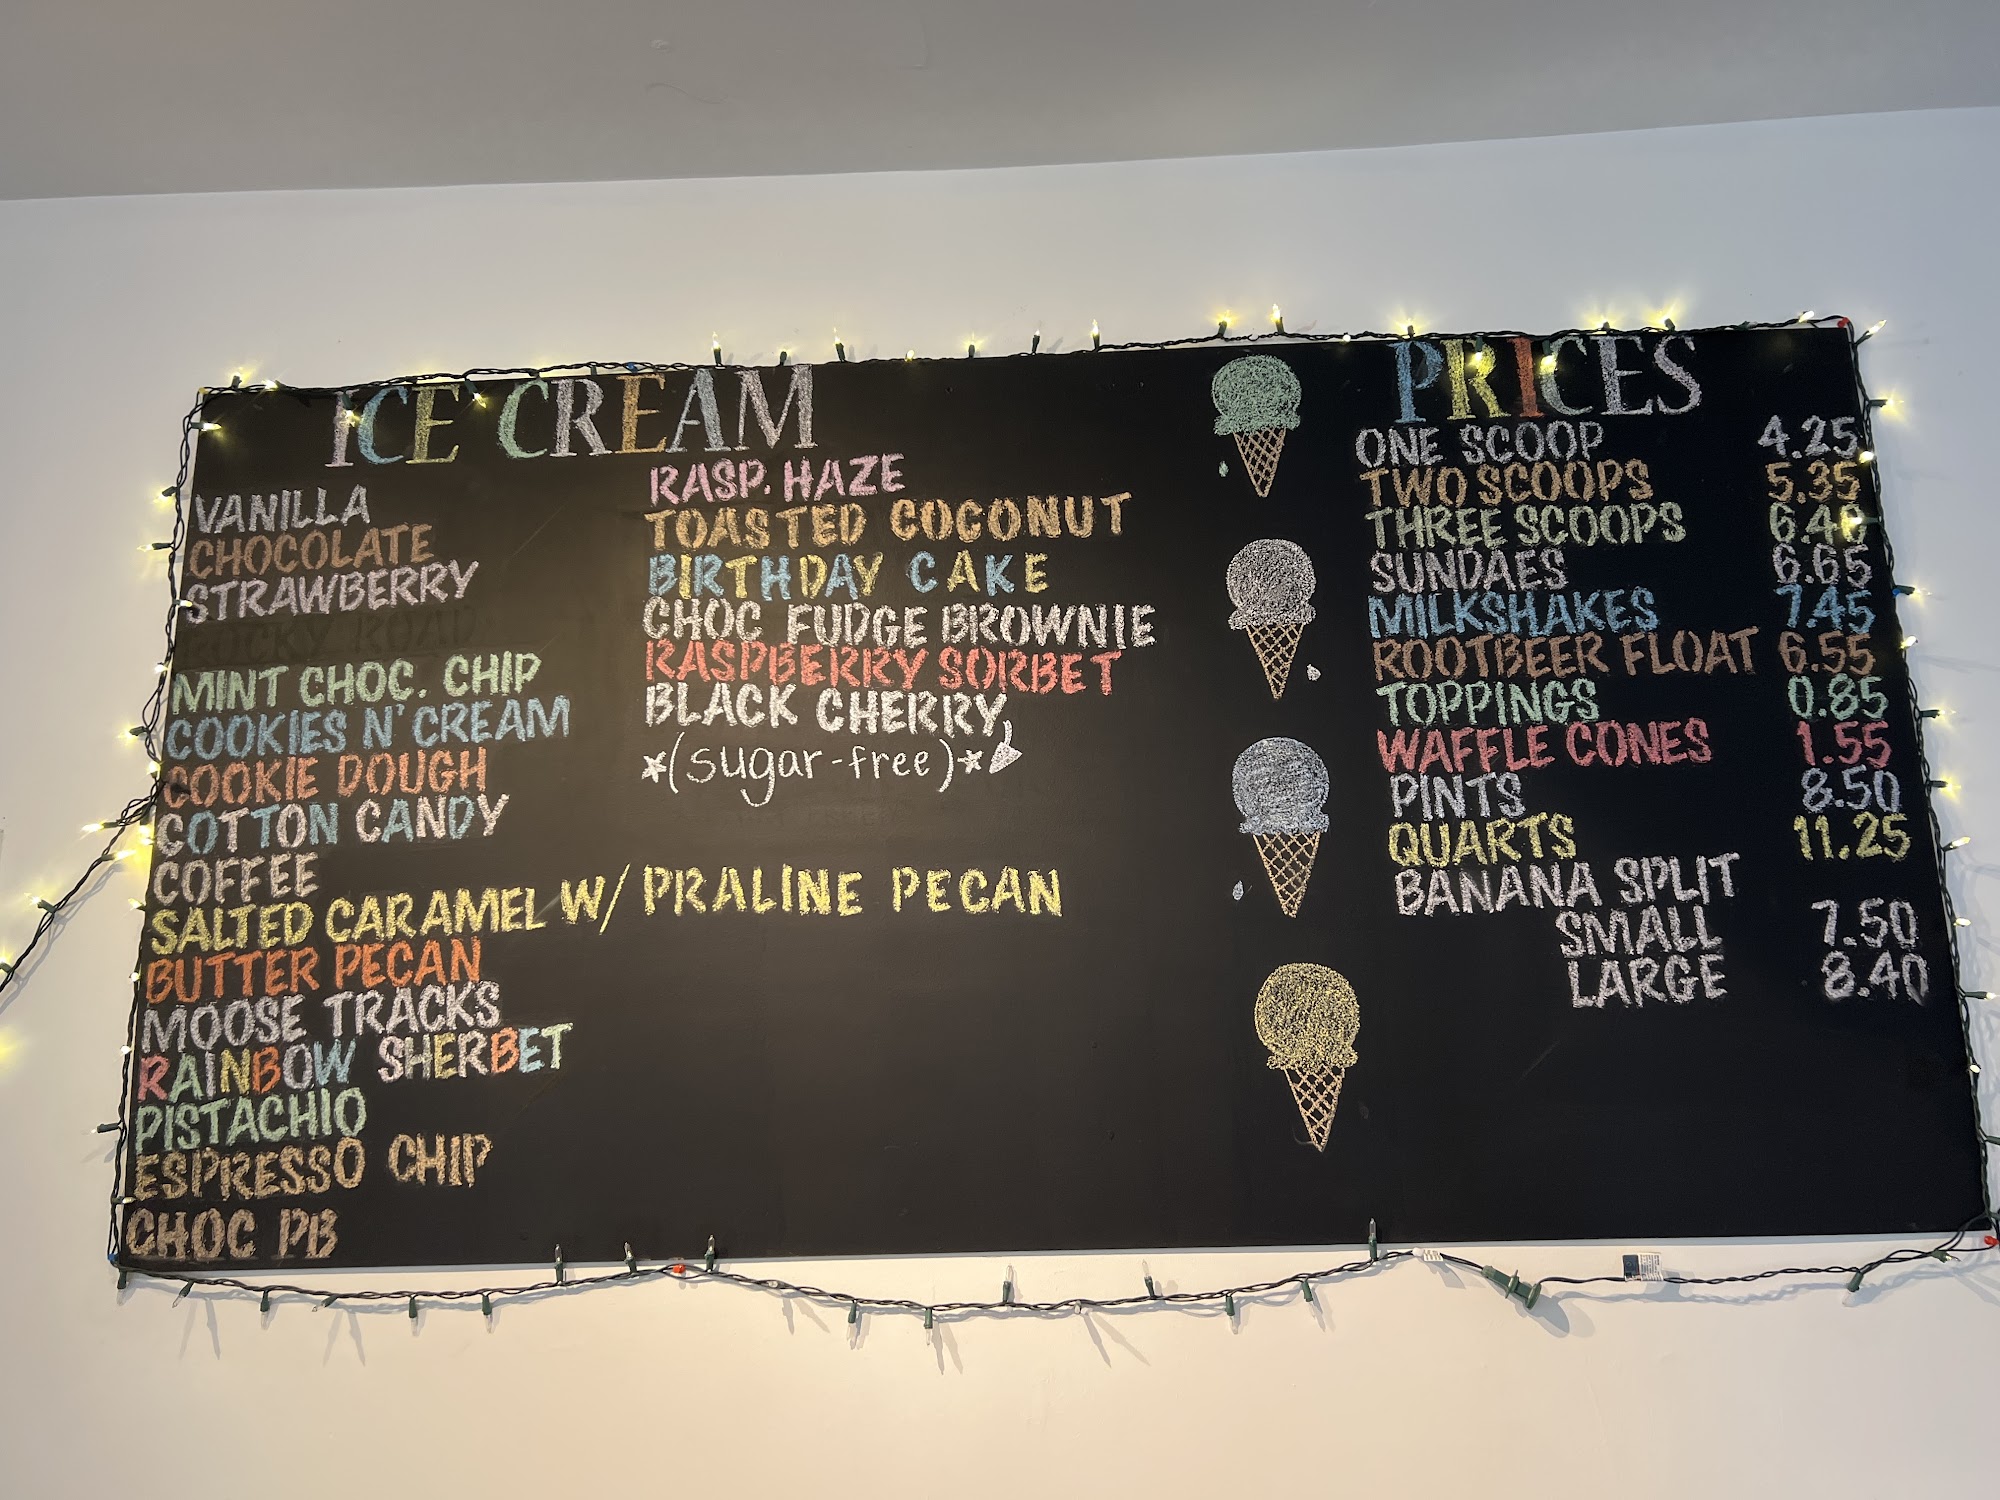 ICE CREAM
VANILLA
CHOCOLATE
STRAWBERRY
ROCKY ROAD
MINT CHOC. CHIP
COOKIES N' CREAM
COOKIE DOUGH
COTTON CANDY
COFFEE
SALTED CARAMEL W/ PRALINE PECAN
BUTTER PECAN
MOOSE TRACKS
RAINBOW SHERBET
PISTACHIO
ESPRESSO CHIP
CHOC PB
RASP. HAZE
TOASTED COCONUT
BIRTHDAY CAKE
CHOC FUDGE BROWNIE
RASPBERRY SORBET
BLACK CHERRY
*(sugar-free)*
PRICES
ONE SCOOP 4.25
TWO SCOOPS 5.35
THREE SCOOPS 6.40
SUNDAES 6.65
MILKSHAKES 7.45
ROOTBEER FLOAT 6.55
TOPPINGS 0.85
WAFFLE CONES 1.55
PINTS 8.50
QUARTS 11.25
BANANA SPLIT
SMALL 7.50
LARGE 8.40